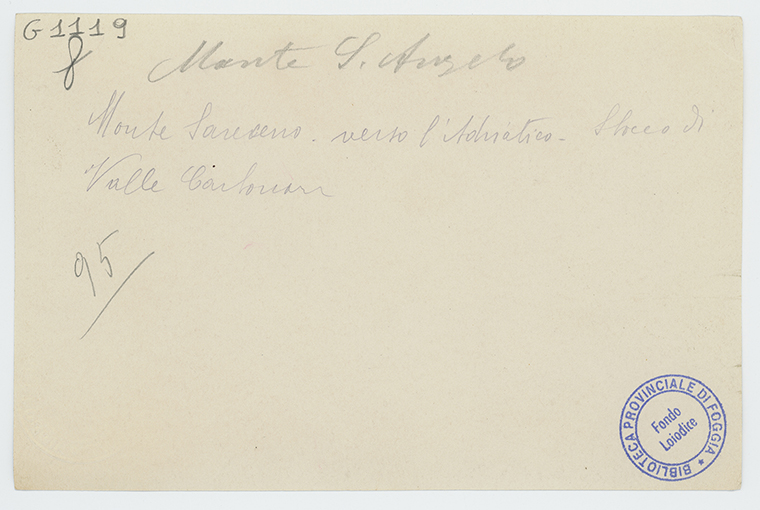 G 1119
8
Monte S. Angelo
Monte Saraceno - verso l'Adriatico - Sbocco di
Valle Carbonara
95/
BIBLIOTECA PROVINCIALE DI FOGGIA *
Fondo
Loiodice